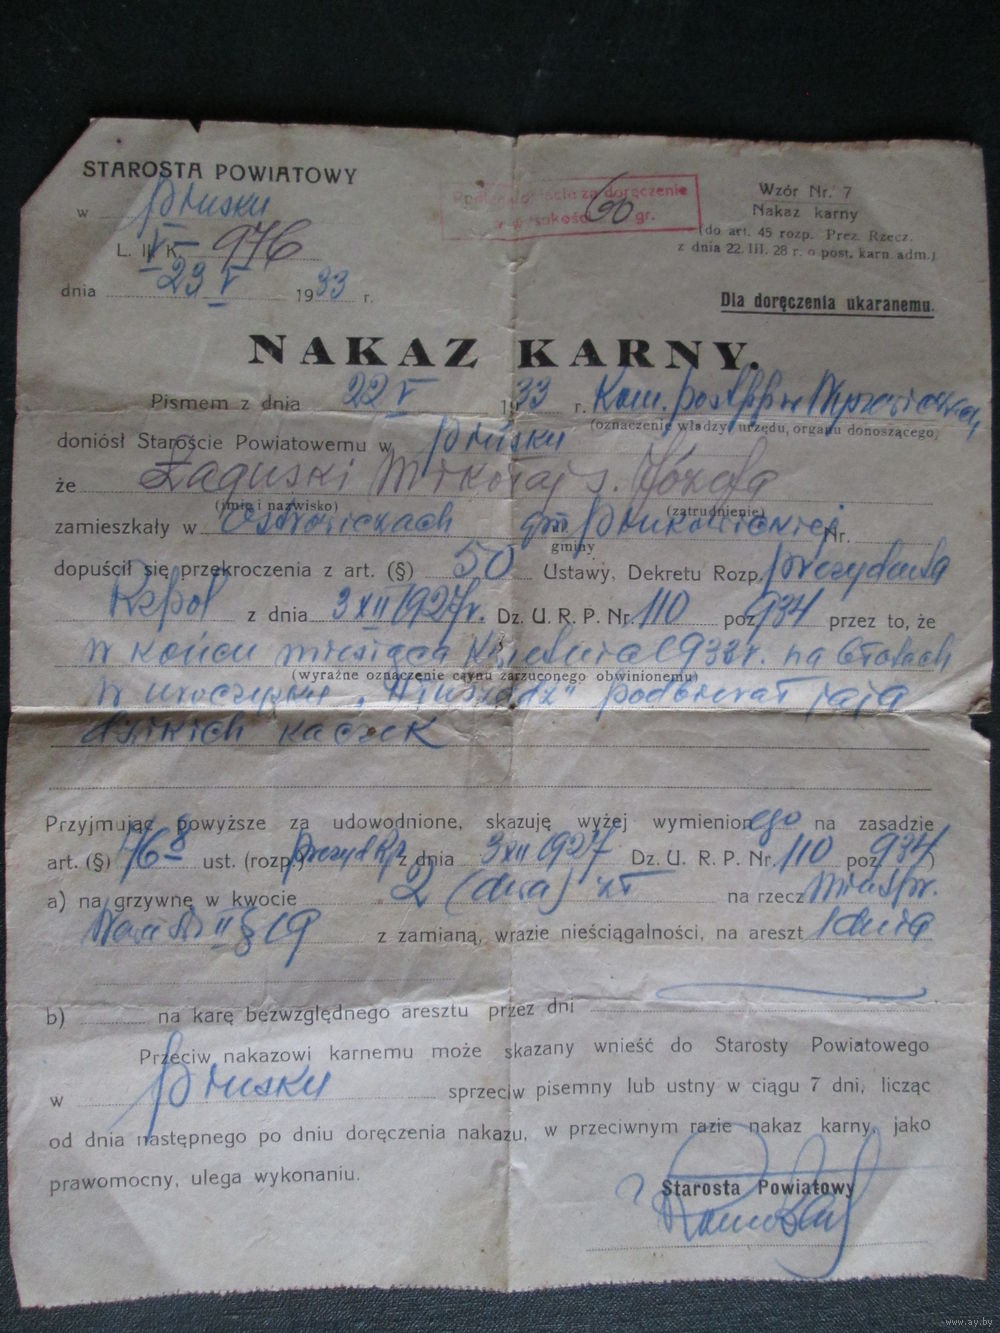 STAROSTA POWIATOWY
w Prusku
L. II. K. V – 976
dnia 23 V 1933 r.
za doręczenie
w wysokości 60 gr.
Wzór Nr. 7
Nakaz karny
(do art. 45 rozp. Prez. Rzecz.
z dnia 22. III. 28 r. o post. karn. adm.)
Dla doręczenia ukaranemu.
NAKAZ KARNY.
Pismem z dnia 22 V 1933 r. Kom. post. P.P. w
(oznaczenie władzy, urzędu, organu donoszącego)
doniósł Staroście Powiatowemu w Prusku
że Łaguski Mikołaj s. Józefa
(imię i nazwisko) (zatrudnienie)
zamieszkały w gm. Nr.
gminy
dopuścił się przekroczenia z art. (§) 50 Ustawy, Dekretu Rozp. Prezydenta
Rzpol z dnia 3 XII 1927 r. Dz. U. R. P. Nr. 110 poz. 934 przez to, że
w końcu miesiąca kwietnia 1933 r. na błotach
(wyraźne oznaczenie czynu zarzuconego obwinionemu)
w uroczysku podbierał jaja
dzikich kaczek
Przyjmując powyższe za udowodnione, skazuję wyżej wymienionego na zasadzie
art. (§) 76 § ust. (rozp.) Prezyd Rp z dnia 3 XII 1927 Dz. U. R. P. Nr. 110 poz. 934)
a) na grzywnę w kwocie 2 (dwa) zł na rzecz
II § 19 z zamianą, wrazie nieściągalności, na areszt 1 dnia
b) na karę bezwzględnego aresztu przez dni
Przeciw nakazowi karnemu może skazany wnieść do Starosty Powiatowego
w Prusku sprzeciw pisemny lub ustny w ciągu 7 dni, licząc
od dnia następnego po dniu doręczenia nakazu, w przeciwnym razie nakaz karny, jako
prawomocny, ulega wykonaniu.
Starosta Powiatowy
www.ay.by